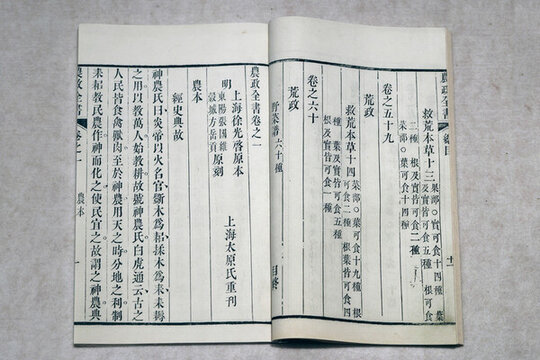 農政全書
救荒本草十三 果部○實可食十四種 葉
及實皆可食五種 根可食
二種 根及實皆可食二種
菜部○葉可食十四種
卷之五十九
荒政
救荒本草十四 菜部○葉可食十九種 根
可食二種 根葉皆可食四
種 葉及實皆可食五種
根及實皆可食一種
卷之六十
荒政
野菜譜六十種
目終
農政全書卷之一
明
上海徐光啓原本
東陽張國維
穀城方岳貢
原刻
上海太原氏重刊
農本
經史典故
神農氏曰炎帝以火名官斲木為耜揉木為耒耒耨
之用以教萬人始教耕故號神農氏白虎通云古之
人民皆食禽獸肉至於神農用天之時分地之利制
耒耜教民農作神而化之使民宜之故謂之神農典
農政全書 卷之一 農本 一